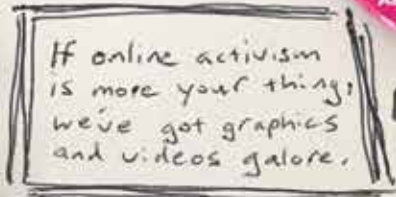 If online activism
is more your thing,
we've got graphics
and videos galore.